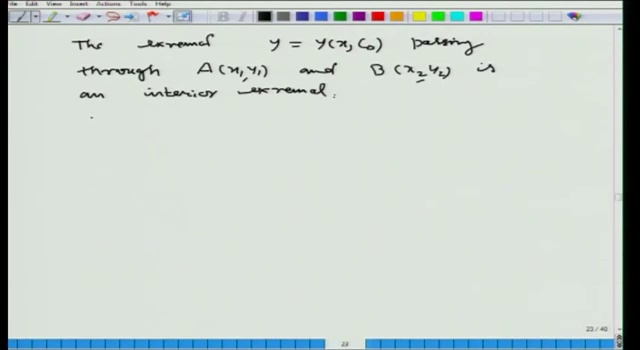 Edit View Insert Actions Tools Help
The exremal y = y(x, C₀) passing
through A(x₁, y₁) and B(x₂, y₂) is
an interior exremal.
23 / 40
23